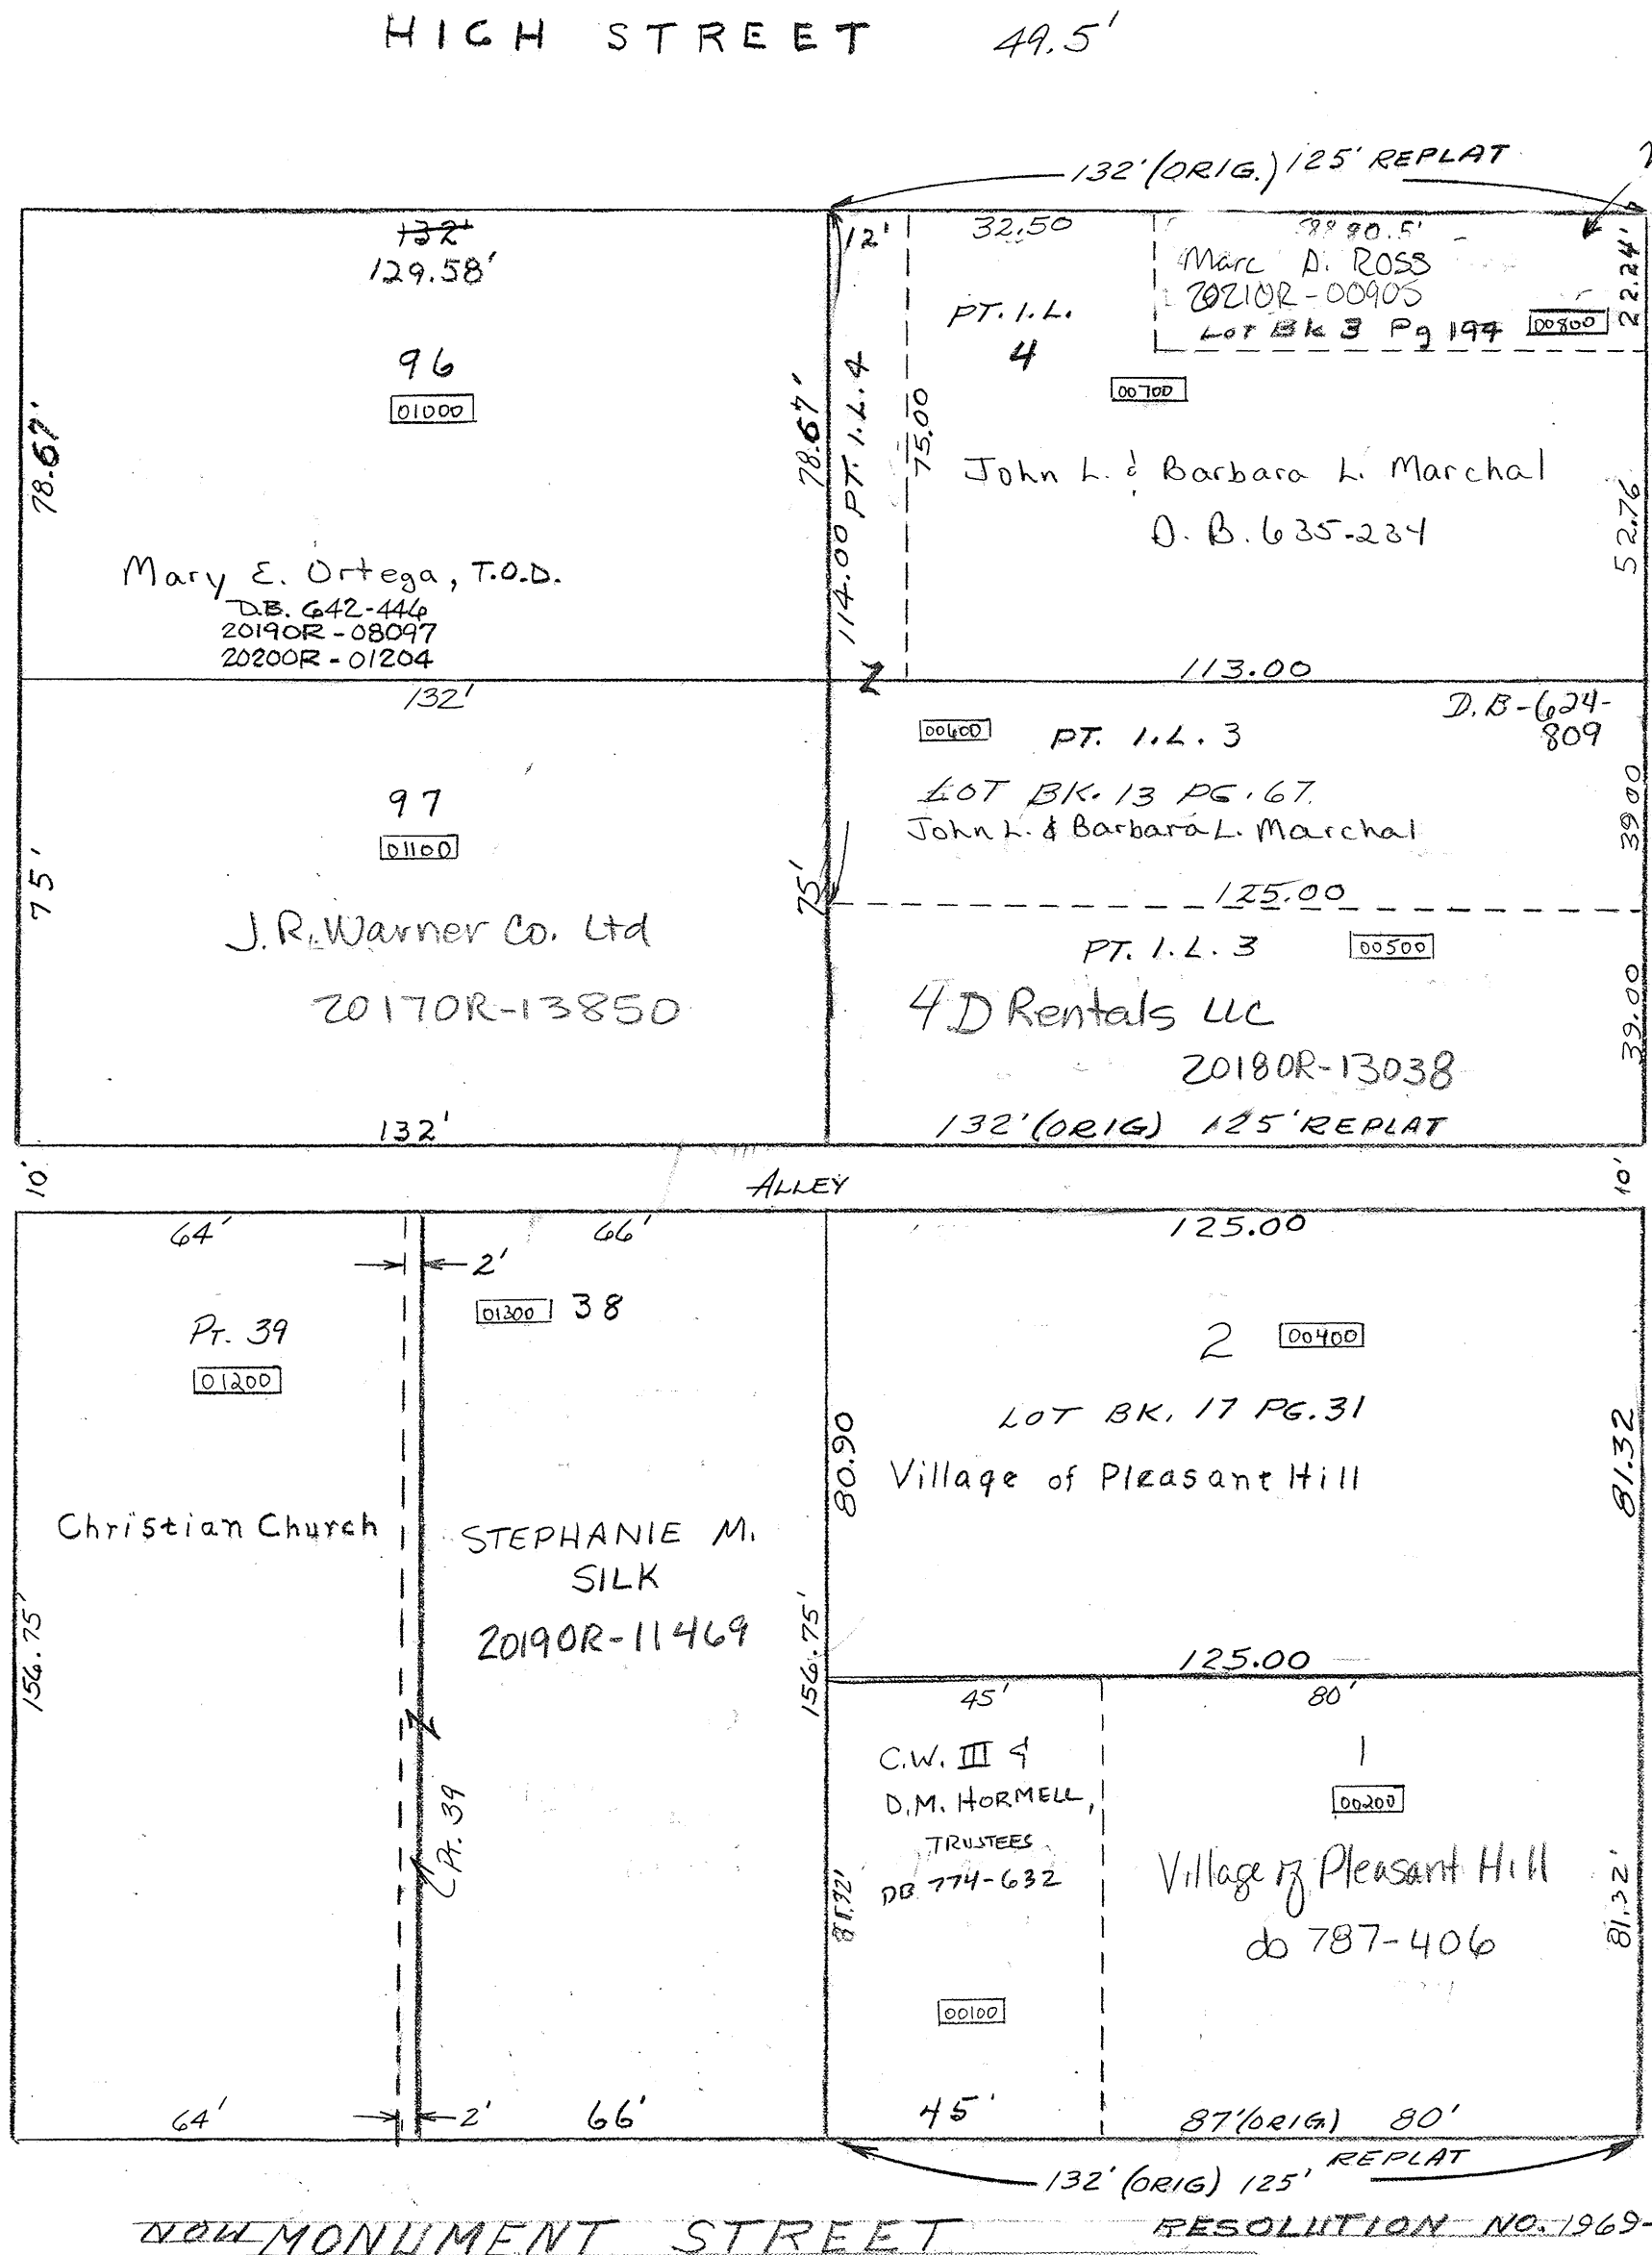 HIGH STREET 49.5'
132' (ORIG.) 125' REPLAT
132'
129.58'
96
01000
78.67'
78.67'
Mary E. Ortega, T.O.D.
D.B. 642-446
2019OR-08097
2020OR-01204
12'
114.00 PT. I.L. 4
75.00
32.50
PT. I.L.
4
90.5'
Marc D. Ross
2021OR-00905
Lot Bk 3 Pg 194
00800
22.24'
00700
John L. & Barbara L. Marchal
D.B. 635-234
52.76
113.00
132'
97
01100
75'
75'
J.R. Warner Co. Ltd
2017OR-13850
132'
D.B-624-
809
00600
PT. I.L. 3
LOT BK. 13 PG. 67.
John L. & Barbara L. Marchal
39.00
125.00
PT. I.L. 3
00500
4D Rentals LLC
2018OR-13038
39.00
132' (ORIG) 125' REPLAT
10'
ALLEY
10'
64'
2'
66'
Pt. 39
01200
Christian Church
156.75'
64'
01300
38
STEPHANIE M.
SILK
2019OR-11469
156.75'
Pt. 39
2'
66'
125.00
2
00400
LOT BK. 17 PG. 31
Village of Pleasant Hill
80.90
81.32
125.00
45'
C.W. III &
D.M. HORMELL,
TRUSTEES
DB 774-632
00100
45'
80'
1
00200
Village of Pleasant Hill
db 787-406
81.32'
87' (ORIG) 80'
REPLAT
132' (ORIG) 125'
NOW MONUMENT STREET
RESOLUTION NO. 1969-